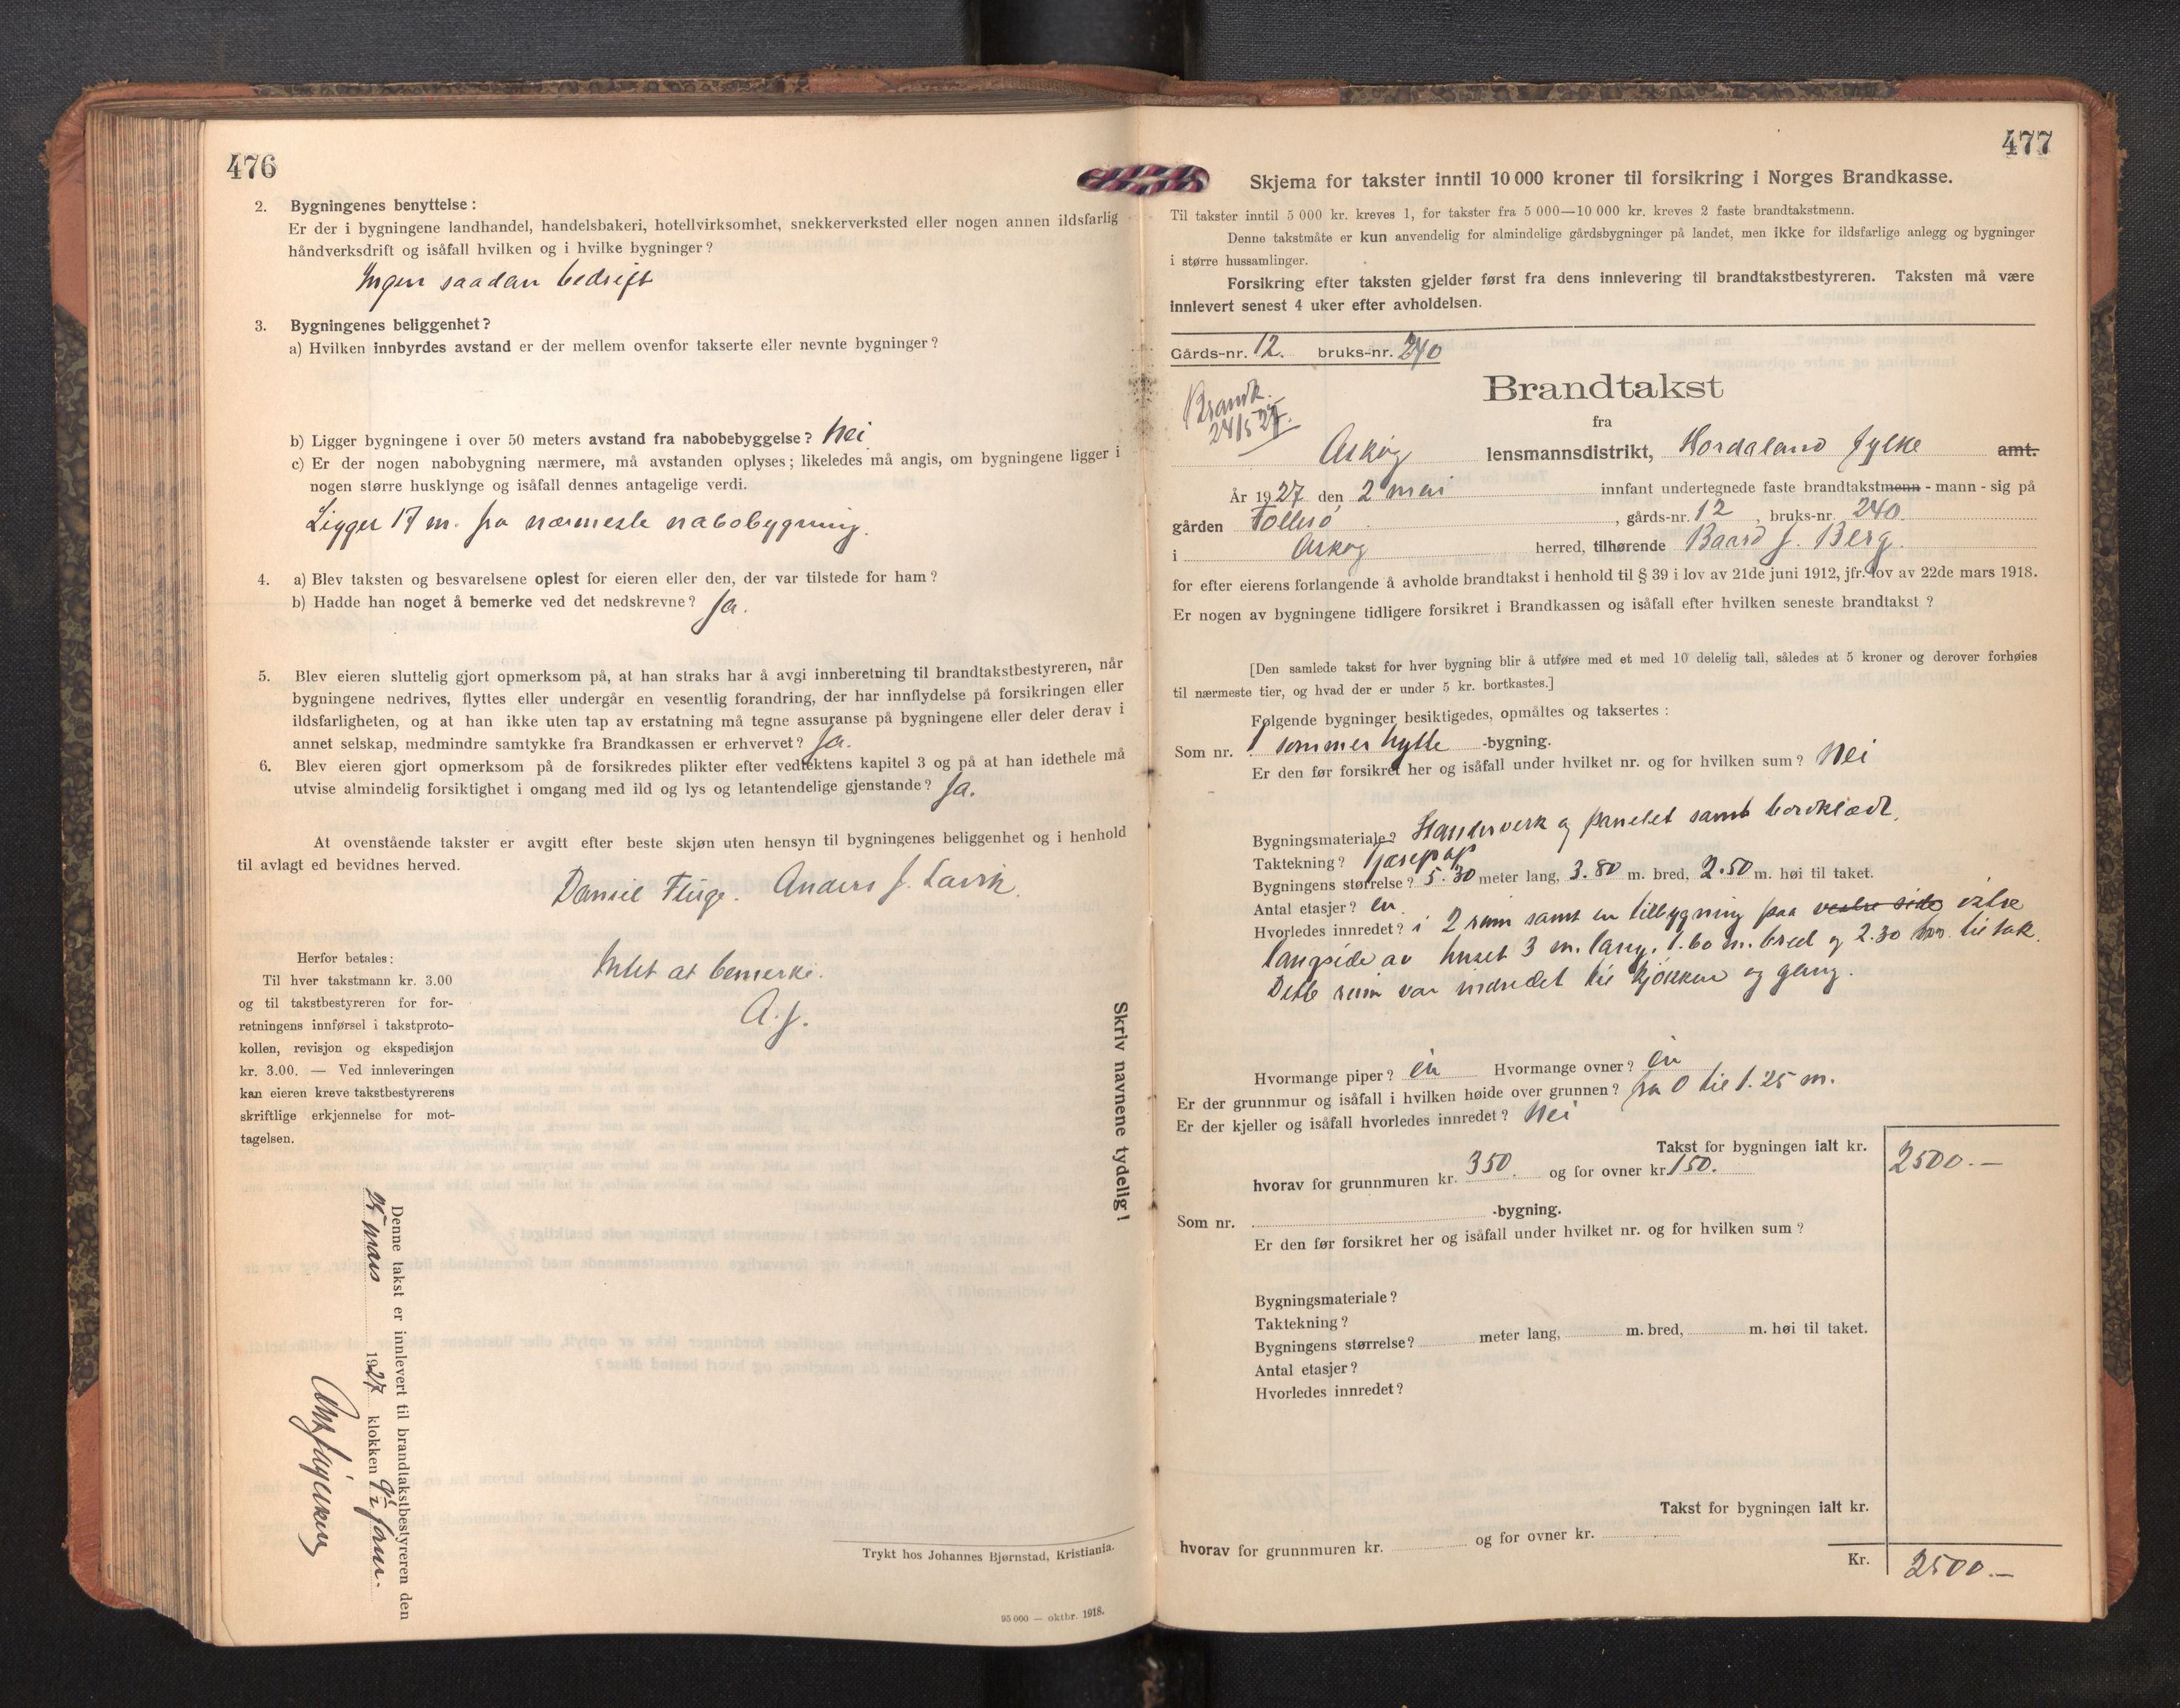 476
2. Bygningenes benyttelse :
Er der i bygningene landhandel, handelsbakeri, hotellvirksomhet, snekkerverksted eller nogen annen ildsfarlig
håndverksdrift og isåfall hvilken og i hvilke bygninger ?
Ingen saadan bedrift
3. Bygningenes beliggenhet ?
a) Hvilken innbyrdes avstand er der mellem ovenfor takserte eller nevnte bygninger ?
b) Ligger bygningene i over 50 meters avstand fra nabobebyggelse ? Nei
c) Er der nogen nabobygning nærmere, må avstanden oplyses ; likeledes må angis, om bygningene ligger i
nogen større husklynge og isåfall dennes antagelige verdi.
Ligger 17 m. fra nærmeste nabobygning.
4. a) Blev taksten og besvarelsene oplest for eieren eller den, der var tilstede for ham ?
b) Hadde han noget å bemerke ved det nedskrevne ? Ja.
5. Blev eieren sluttelig gjort opmerksom på, at han straks har å avgi innberetning til brandtakstbestyreren, når
bygningene nedrives, flyttes eller undergår en vesentlig forandring, der har innflydelse på forsikringen eller
ildsfarligheten, og at han ikke uten tap av erstatning må tegne assuranse på bygningene eller deler derav i
annet selskap, medmindre samtykke fra Brandkassen er erhvervet ? Ja.
6. Blev eieren gjort opmerksom på de forsikredes plikter efter vedtektens kapitel 3 og på at han idethele må
utvise almindelig forsiktighet i omgang med ild og lys og letantendelige gjenstande ? Ja.
At ovenstående takster er avgitt efter beste skjøn uten hensyn til bygningenes beliggenhet og i henhold
til avlagt ed bevidnes herved.
Daniel Fluge. Anders J. Lavik.
Herfor betales :
Til hver takstmann kr. 3.00
og til takstbestyreren for for-
retningens innførsel i takstproto-
kollen, revisjon og ekspedisjon
kr. 3.00. — Ved innleveringen
kan eieren kreve takstbestyrerens
skriftlige erkjennelse for mot-
tagelsen.
Intet at bemerke.
A. J.
Skriv navnene tydelig !
Denne takst er innlevert til brandtakstbestyreren den
25 mars 1927 klokken 9½ form.
Trykt hos Johannes Bjørnstad, Kristiania.
95 000 — oktbr. 1918.
477
Skjema for takster inntil 10 000 kroner til forsikring i Norges Brandkasse.
Til takster inntil 5 000 kr. kreves 1, for takster fra 5 000—10 000 kr. kreves 2 faste brandtakstmenn.
Denne takstmåte er kun anvendelig for almindelige gårdsbygninger på landet, men ikke for ildsfarlige anlegg og bygninger
i større hussamlinger.
Forsikring efter taksten gjelder først fra dens innlevering til brandtakstbestyreren. Taksten må være
innlevert senest 4 uker efter avholdelsen.
Gårds-nr. 12. bruks-nr. 240
Brandk.
24/5 27.
Brandtakst
fra
Askøy lensmannsdistrikt, Hordaland fylke amt.
År 1927 den 2 mai innfant undertegnede faste brandtakstmenn - mann - sig på
gården Follesø , gårds-nr. 12 , bruks-nr. 240
i Askøy herred, tilhørende Baard J. Berg.
for efter eierens forlangende å avholde brandtakst i henhold til § 39 i lov av 21de juni 1912, jfr. lov av 22de mars 1918.
Er nogen av bygningene tidligere forsikret i Brandkassen og isåfall efter hvilken seneste brandtakst ?
[Den samlede takst for hver bygning blir å utføre med et med 10 delelig tall, således at 5 kroner og derover forhøies
til nærmeste tier, og hvad der er under 5 kr. bortkastes.]
Følgende bygninger besiktigedes, opmåltes og taksertes :
Som nr. 1 sommerhytte -bygning.
Er den før forsikret her og isåfall under hvilket nr. og for hvilken sum ? Nei
Bygningsmateriale ? Standerverk og panelet samt bordklædt.
Taktekning ? Tjærepap
Bygningens størrelse ? 5.30 meter lang, 3.80 m. bred, 2.50 m. høi til taket.
Antal etasjer ? en
Hvorledes innredet ? i 2 rum samt en tilbygning paa vestre side østre
langside av huset 3 m. lang, 1.60 m. bred og 2.30 til tak.
Dette rum var indredet til kjøkken og gang.
Hvormange piper ? én Hvormange ovner ? én
Er der grunnmur og isåfall i hvilken høide over grunnen ? fra 0 til 1.25 m.
Er der kjeller og isåfall hvorledes innredet ? Nei
Takst for bygningen ialt kr. 2500.—
hvorav for grunnmuren kr. 350. og for ovner kr 150.
Som nr. -bygning.
Er den før forsikret her og isåfall under hvilket nr. og for hvilken sum ?
Bygningsmateriale ?
Taktekning ?
Bygningens størrelse ? meter lang, m. bred, m. høi til taket.
Antal etasjer ?
Hvorledes innredet ?
Takst for bygningen ialt kr.
hvorav for grunnmuren kr. og for ovner kr.
Kr. 2500.—